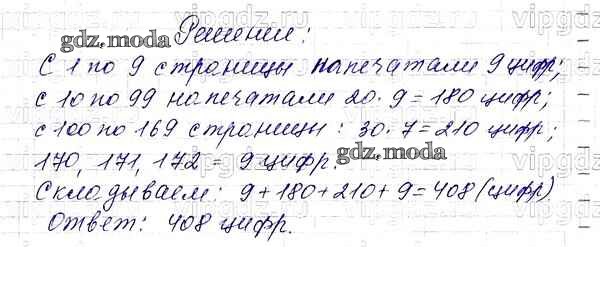 Решение:
gdz.moda
С 1 по 9 страницы напечатали 9 цифр;
с 10 по 99 напечатали 20·9=180 цифр;
с 100 по 169 страницы: 30·7=210 цифр;
170, 171, 172 = 9 цифр.
gdz.moda
Складываем: 9+180+210+9=408 (цифр)
Ответ: 408 цифр.